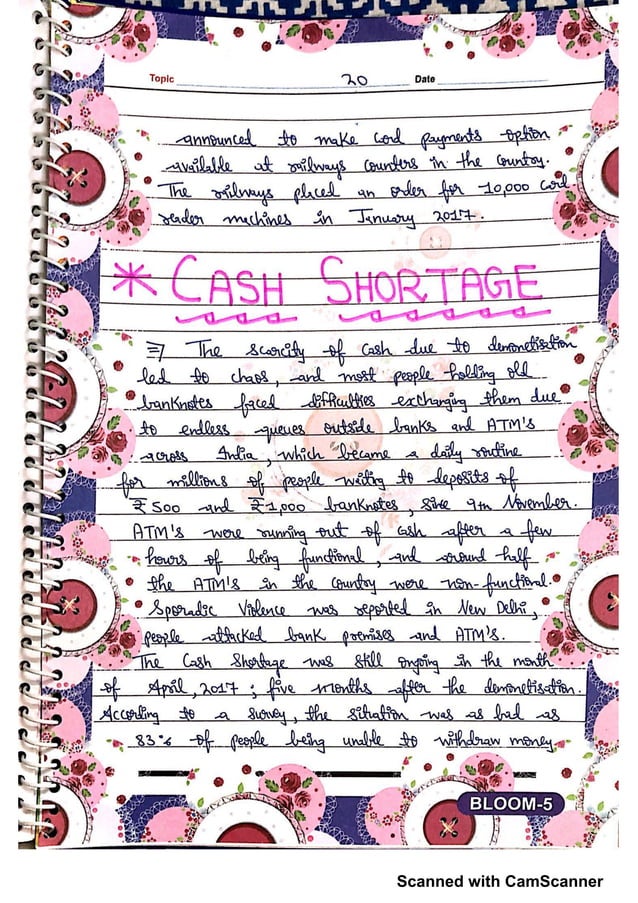 Topic 20 Date
announced to make Card payments option
available at railways counters in the Country.
The railways placed an order for 10,000 Card
reader machines in January 2017.
* CASH SHORTAGE
⇒ The Scarcity of Cash due to demonetisation
led to chaos, and most people holding old
banknotes faced difficulties exchanging them due
to endless queues outside banks and ATM's
across India, which became a daily routine
for millions of people waiting to deposits of
₹500 and ₹1,000 banknotes, Since 9th November.
ATM's were running out of Cash after a few
hours of being functional, and around half
the ATM's in the Country were non-functional.
Sporadic Violence was reported in New Delhi,
people attacked bank premises and ATM's.
The Cash Shortage was still ongoing in the month
of April, 2017; five months after the demonetisation.
According to a Survey, the Situation was as bad as
83% of people being unable to withdraw money
BLOOM-5
Scanned with CamScanner